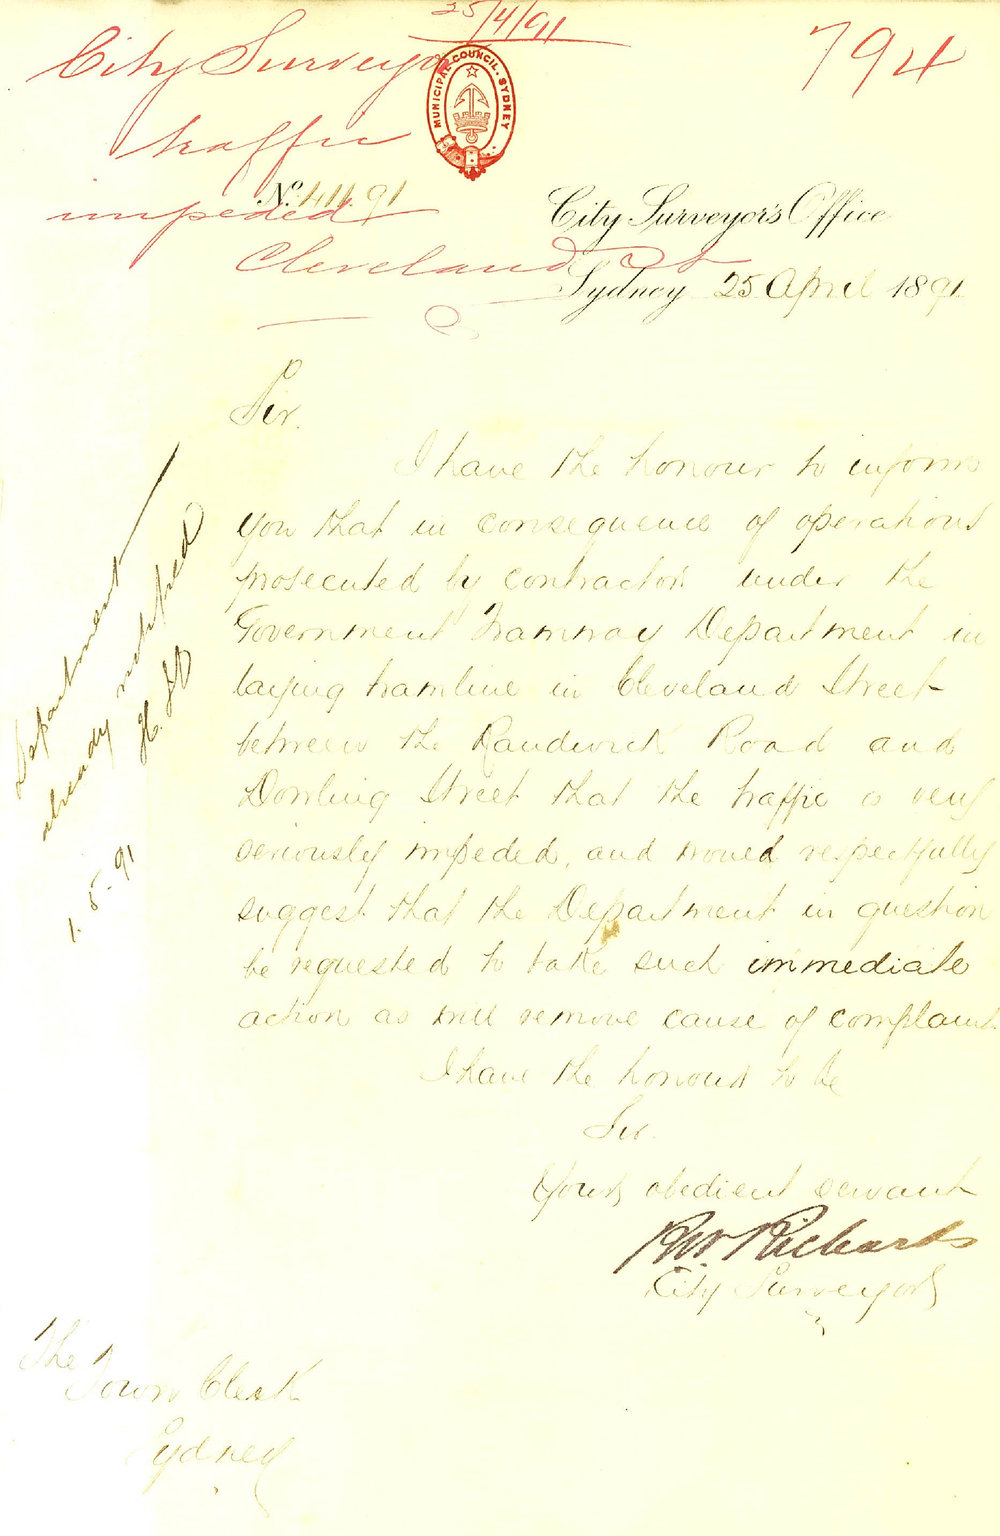 25/4/91
City Surveyor
794
MUNICIPAL COUNCIL. SYDNEY
traffic
No. 411.91
impeded
City Surveyor's Office
Cleveland St
Sydney 25 April 1891
Sir.
I have the honour to inform
you that in consequence of operations
prosecuted by contractors under the
Government Tramway Department in
laying tramline in Cleveland Street
between the Randwick Road and
Dowling Street that the traffic is very
seriously impeded, and would respectfully
suggest that the Department in question
be requested to take such immediate
action as will remove cause of complaint.
I have the honour to be
Sir.
Your obedient servant
RW Richards
City Surveyor
The
Town Clerk
Sydney
Department
already notified
1.5.91